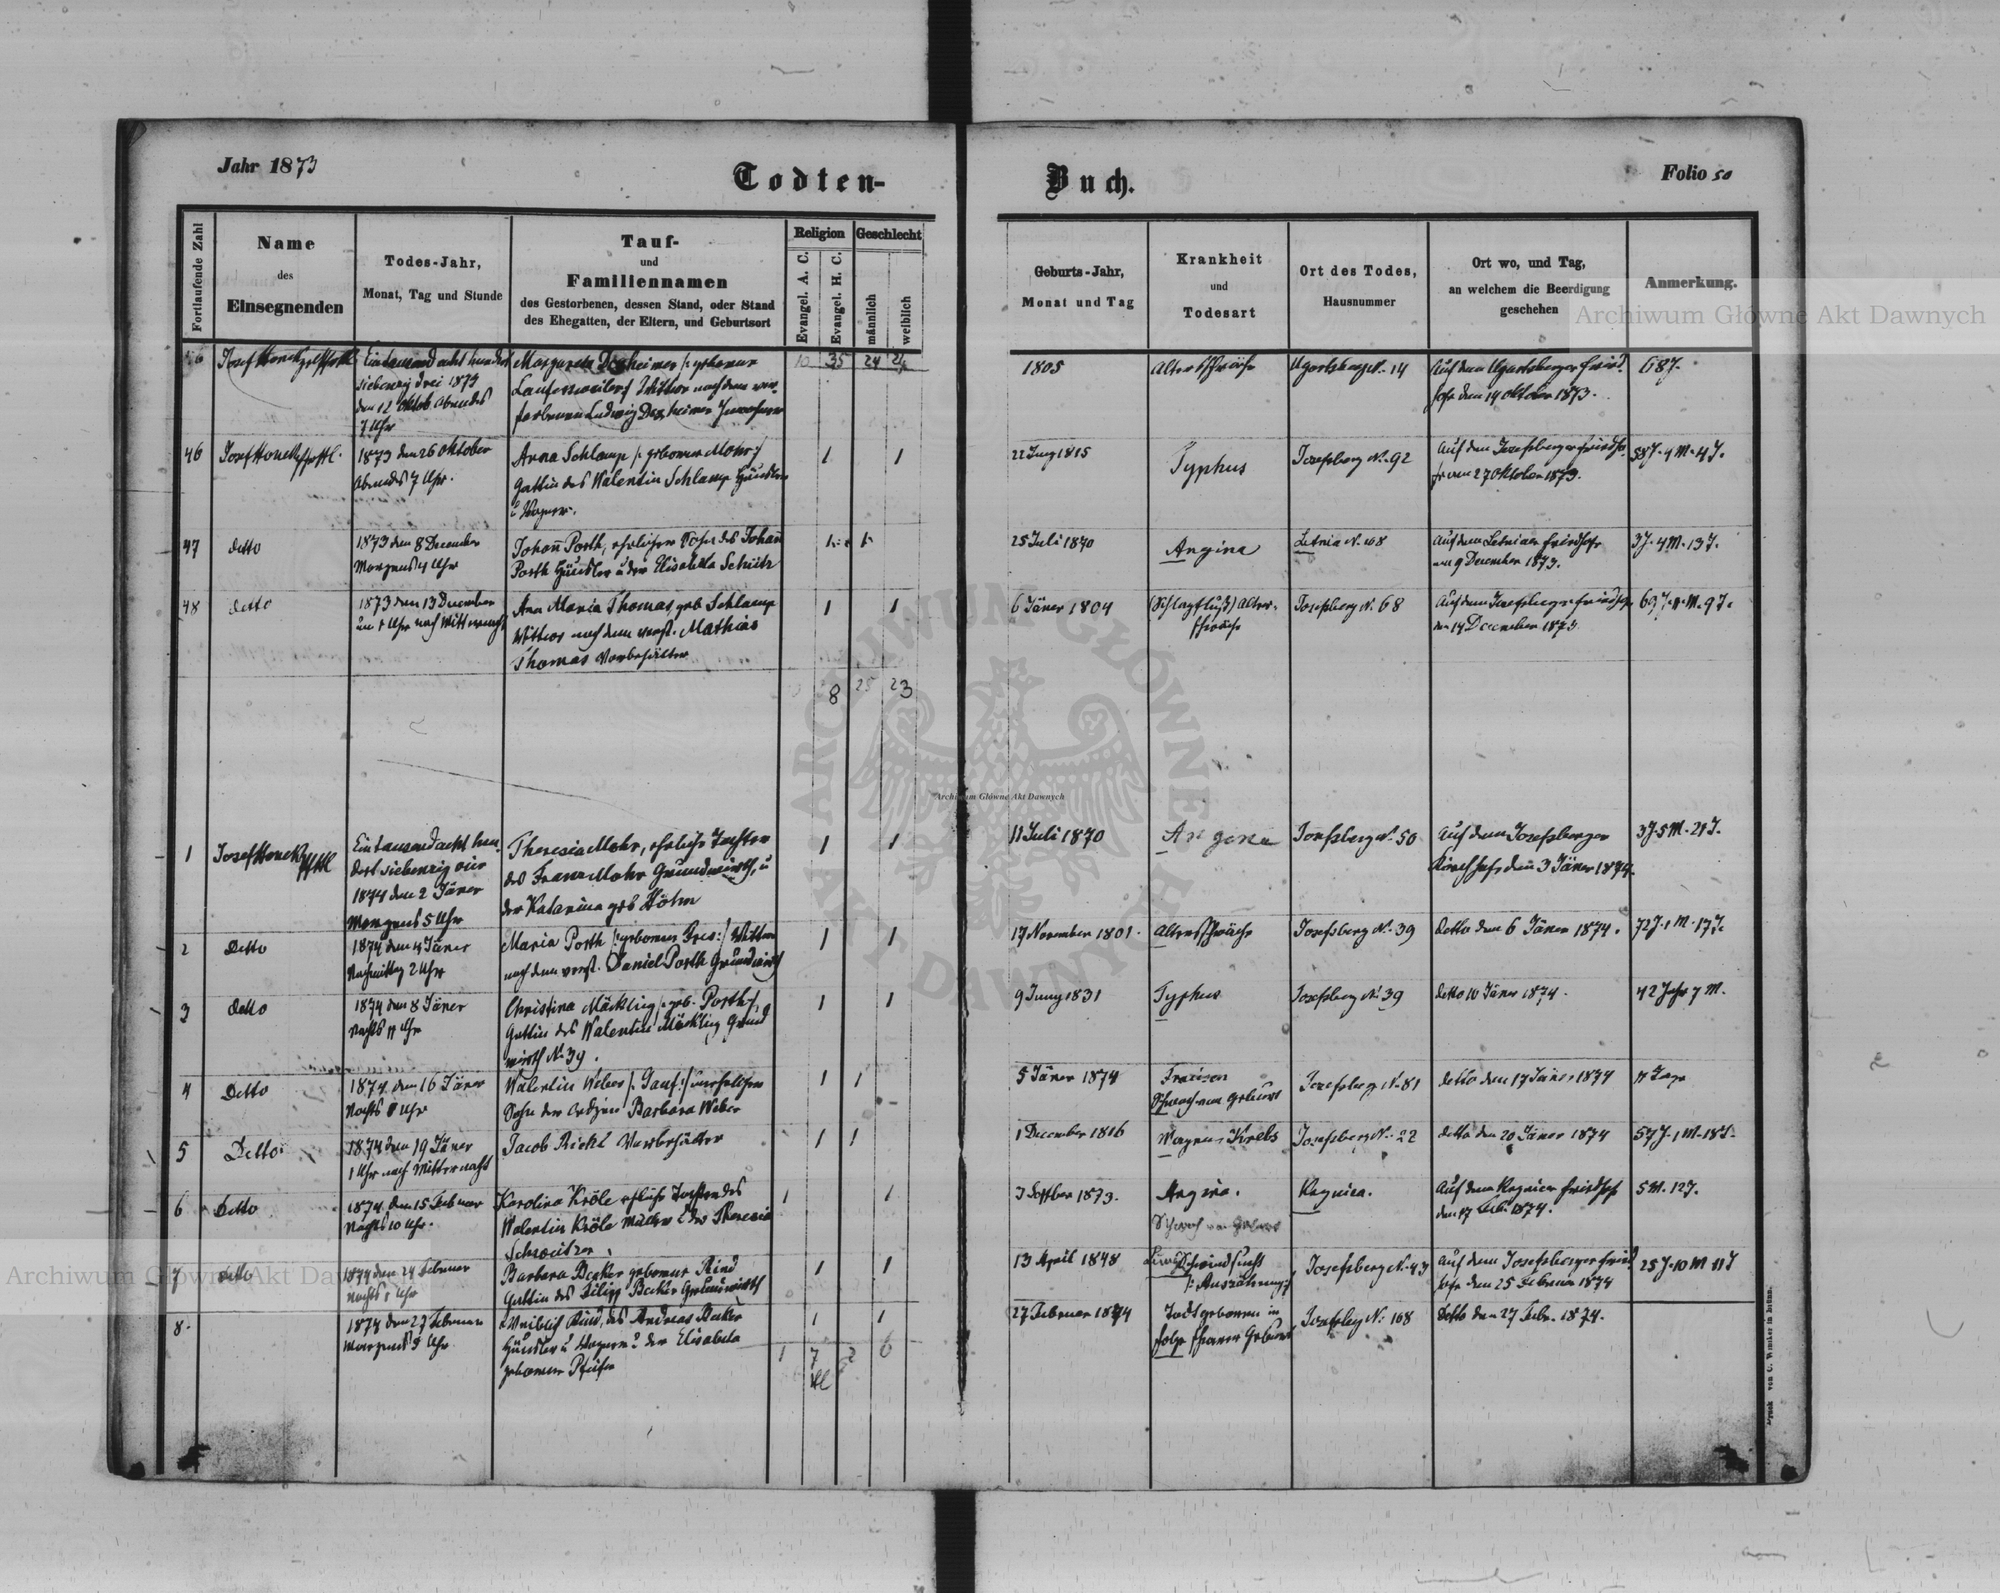 Jahr 1873
Todten-
Buch.
Folio 50
Fortlaufende Zahl
Name
des
Einsegnenden
Todes-Jahr,
Monat, Tag und Stunde
Tauf-
und
Familiennamen
des Gestorbenen, dessen Stand, oder Stand
des Ehegatten, der Eltern, und Geburtsort
Religion
Evangel. A. C.
Evangel. H. C.
Geschlecht
männlich
weiblich
Geburts-Jahr,
Monat und Tag
Krankheit
und
Todesart
Ort des Todes,
Hausnummer
Ort wo, und Tag,
an welchem die Beerdigung
geschehen
Anmerkung.
Josef Honck
Eintausend acht hundert
siebenzig drei 1873
den 12 Oktob Abends
7 Uhr
Margareta geborene
Wittwe nach dem ver-
storbenen Ludwig
10 35 24
1805
Altersschwäche
Ugartsberg N. 14
Auf dem Ugartsberger Fried
hofe den 14 Oktober 1873.
68 J.
46
Josef Honck
1873 den 26 Oktober
Abends 7 Uhr.
Anna Schlamp /: geborene Mohr :/
Gattin des Valentin Schlamp Häusler
u Wagner.
1 1
22 Juny 1815
Typhus
Josefsberg N. 92
Auf dem Josefsberger Friedho-
fe am 27 Oktober 1873.
58 J. 4 M. 4 T.
47
detto
1873 den 8 December
Morgens 4 Uhr
Johann Porth, ehelicher Sohn des Johann
Porth Häusler u der Elisabetha Schütz
25 Juli 1870
Angina
Letnia N. 108
Auf dem Letniaer Friedhofe
am 9 December 1873.
3 J. 4 M. 13 T.
48
detto
1873 den 13 December
um 1 Uhr nach Mitternacht
Ana Maria Thomas geb Schlamp
Wittwe nach dem verst. Mathias
Thomas Vorbehälter
1 1
6 Jäner 1804
(Schlagfluß) Alters-
schwäche
Josefsberg N. 68
Auf dem Josefsberger Friedhofe
den 14 December 1873
69 J. 11 M. 9 T.
8 25 23
1
Josef Honck
Eintausend acht hun-
dert siebenzig vier
1874 den 2 Jäner
Morgens 5 Uhr
Theresia Mohr, eheliche Tochter
des Franz Mohr Grundwirth, u
der Katarina geb Höhn
1 1
11 Juli 1870
Angina
Josefsberg N. 50
Auf dem Josefsberger
Kirchhofe den 3 Jäner 1874.
3 J. 5 M. 21 T.
2
Detto
1874 den 4 Jäner
Nachmittag 2 Uhr
Maria Porth /: geborene Gres :/ Wittwe
nach dem verst. Daniel Porth Grundwirth
1 1
17 November 1801.
Altersschwäche
Josefsberg N. 39
detto den 6 Jäner 1874.
72 J. 1 M. 17 T.
3
detto
1874 den 8 Jäner
Nachts 11 Uhr
Christina Mäckling /: geb. Porth :/
Gattin des Valentin Mäckling Grund
wirth N. 39.
1 1
9 Juny 1831
Typhus
Josefsberg N. 39
detto 10 Jäner 1874.
42 Jahr 7 M.
4
Detto
1874 den 16 Jäner
Nachts Uhr
Valentin Weber unehelicher
Sohn der ledigen Barbara Weber
1 1
5 Jäner 1874
Fraisen
Schwach von Geburt
Josefsberg N. 81
detto den 17 Jäner 1874
11 Tage
5
Detto
1874 den 19 Jäner
1 Uhr nach Mitternacht
Jacob Bickl Vorbehälter
1 1
1 December 1816
Magen Krebs
Josefsberg N. 22
detto den 20 Jäner 1874
57 J. 1 M. 18 T.
6
Detto
1874 den 15 Februar
Nachts 10 Uhr.
Karolina Kröle eheliche Tochter des
Valentin Kröle Müller u der Theresia
Schweitzer
1 1
3 1873.
Angina.
Schwach von Geburt
Kragnica.
Auf dem Friedhofe
den 17 Febr 1874.
5 M. 12 T.
7
detto
1874 den 24 Februar
Nachts Uhr
Barbara Becker geborene Rind
Gattin des Filipp Becker Grundwirth
1 1
13 April 1848
/: Auszährung :/
Josefsberg N. 43
Auf dem Josefsberger Fried
hofe den 25 Februar 1874
25 J. 10 M. 11 T
8.
1874 den 27 Februar
Morgens 9 Uhr
Weiblich Kind, des Andreas Becker
Häusler u Wagner u der Elisabeta
geborene
1 1
1 7 2 6
27 Februar 1874
Todtgeboren in
folge schwerer Geburt
Josefsberg N. 108
Detto den 27 Febr. 1874.
Druck von C. Winiker in Brünn.
Archiwum Główne Akt Dawnych
Archiwum Główne Akt Dawnych
Archiwum Główne Akt Dawnych
ARCHIWUM GŁÓWNE AKT DAWNYCH